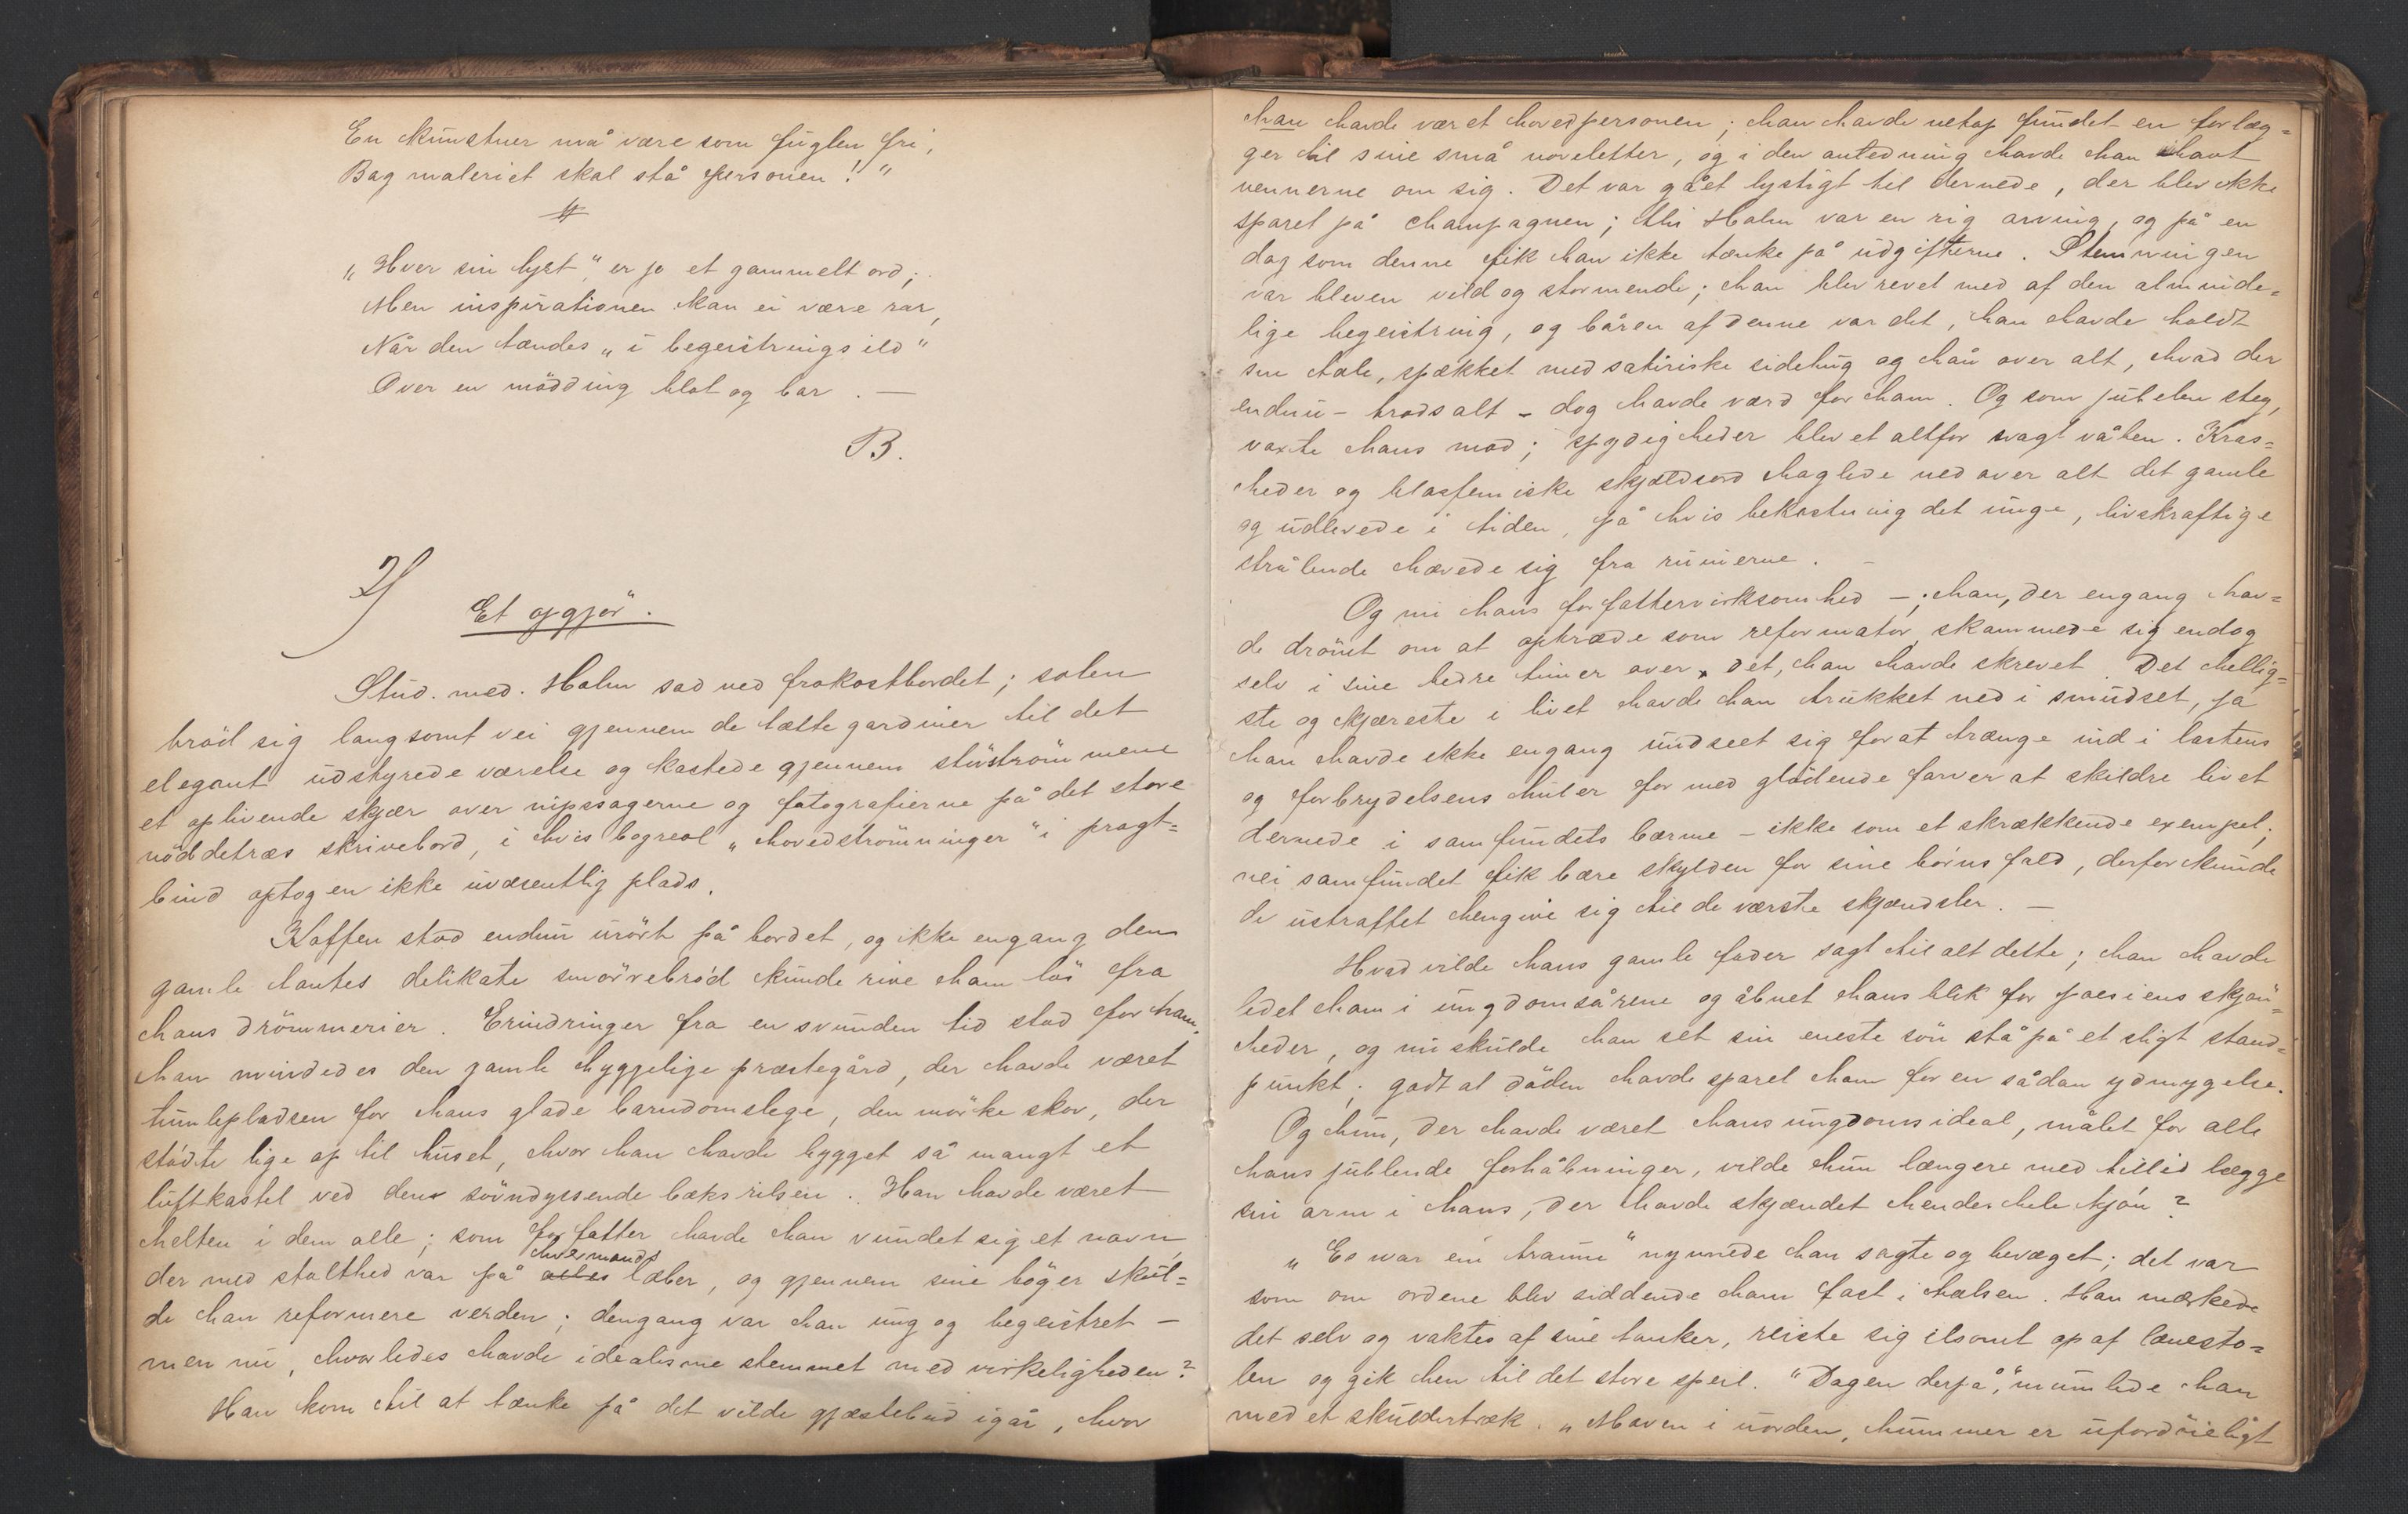 En kunstner må være som fuglen fri,
Bag maleriet skal stå personen!"
#
„Hver sin lyst," er jo et gammelt ord;
Men inspirationen kan ei være rar,
Når den tændes „i begeistrings ild"
Over en mødding blot og bar. —
B.
2)
Et opgjör.
Stud. med. Holm sad ved frokostbordet; solen
bröd sig langsomt vei gjennem de tætte gardiner til det
elegant udstyrede værelse og kastede gjennem stövströmmene
et oplivende skjær over nipssagerne og fotografierne på det store
nöddetræs skrivebord, i hvis bogreol „hovedströmninger" i pragt=
bind optog en ikke uvæsentlig plads.
Kaffen stod endnu urört på bordet, og ikke engang den
gamle tantes delikate smörrebröd kunde rive ham lös fra
hans drömmerier. Erindringer fra en svunden tid stod for ham,
han mindedes den gamle hyggelige præstegård, der havde været
tumlepladsen for hans glade barndomslege, den mörke skov, der
stödte lige op til huset, hvor han havde bygget så mangt et
luftkastel ved dens sövndyssende bæks rilsen. Han havde været
helten i dem alle; som forfatter havde han vundet sig et navn,
der med stolthed var på alles hvermands læber, og gjennem sine böger skul=
de han reformere verden; dengang var han ung og begeistret —
men nu, hvorledes havde idealisme stemmet med virkeligheden?
Han kom til at tænke på det vilde gjæstebud igår, hvor
han havde været hovedpersonen; han havde netop fundet en forlæg=
ger til sine små noveletter, og i den anledning havde han havt
vennerne om sig. Det var gået lystigt til dernede, der blev ikke
sparet på champagnen; thi Holm var en rig arving, og på en
dag som denne fik han ikke tænke på udgifterne. Stemningen
var bleven vild og stormende; han blev revet med af den alminde=
lige begeistring, og båren af denne var det, han havde holdt
sin tale, spækket med satiriske sidehug og hån over alt, hvad der
endnu – trods alt – dog havde værd for ham. Og som jubelen steg,
voxte hans mod; spydigheder blev et altfor svagt våben. Kras=
heder og blasfemiske skjældsord haglede ned over alt det gamle
og udlevede i tiden, på hvis bekostning det unge, livskraftige
strålende hævede sig fra ruinerne.
Og nu hans forfattervirksomhed –; han, der engang hav=
de drömt om at optræde som reformator, skammede sig endog
selv i sine bedre timer over det, han havde skrevet. Det hellig=
ste og kjæreste i livet havde han trukket ned i smudset, ja
han havde ikke engang undseet sig for at trænge ind i lastens
og forbrydelsens huler for med glödende farver at skildre livet
dernede i samfundets bærme – ikke som et skrækkende exempel;
nei samfundet fik bære skylden for sine börns fald, derfor kunde
de ustraffet hengive sig til de værste skjændsler. —
Hvad vilde hans gamle fader sagt til alt dette; han havde
ledet ham i ungdomsårene og åbnet hans blik for poesiens skjön=
heder, og nu skulde han set sin eneste sön stå på et sligt stand=
punkt; godt at döden havde sparet ham for en sådan ydmygelse.
Og hun, der havde været hans ungdoms ideal, målet for alle
hans jublende forhåbninger, vilde hun længere med tillid lægge
sin arm i hans, der havde skjændet hendes hele kjön?
„Es war ein traum" nynnede han sagte og bevæget; det var
som om ordene blev siddende ham fast i halsen. Han mærkede
det selv og vaktes af sine tanker, reiste sig ilsomt op af lænesto=
len og gik hen til det store speil. „Dagen derpå," mumlede han
med et skuldertræk. „Maven i uorden, hummer er ufordöieligt